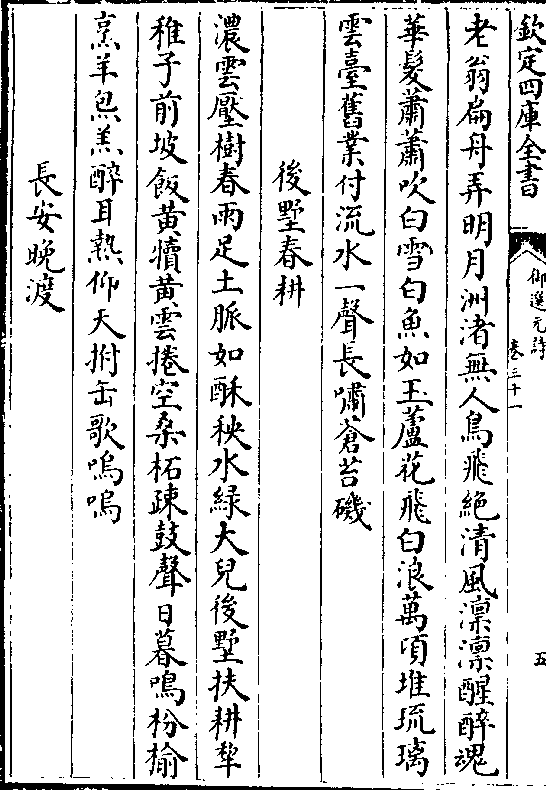 欽定四庫全書
御選元詩
卷三十一
五
老翁扁舟弄明月洲渚無人鳥飛絶清風凛凛醒醉魂
華髮蕭蕭吹白雪白魚如玉蘆花飛白浪萬頃堆琉璃
雲臺舊業付流水一聲長嘯蒼苔磯
後墅春耕
濃雲壓樹春雨足土脈如酥秧水緑大兒後墅扶耕犂
稚子前坡飯黄犢黄雲捲空桑柘疎鼓聲日暮鳴枌榆
烹羊炰羔醉耳熱仰天拊缶歌嗚嗚
長安晚渡